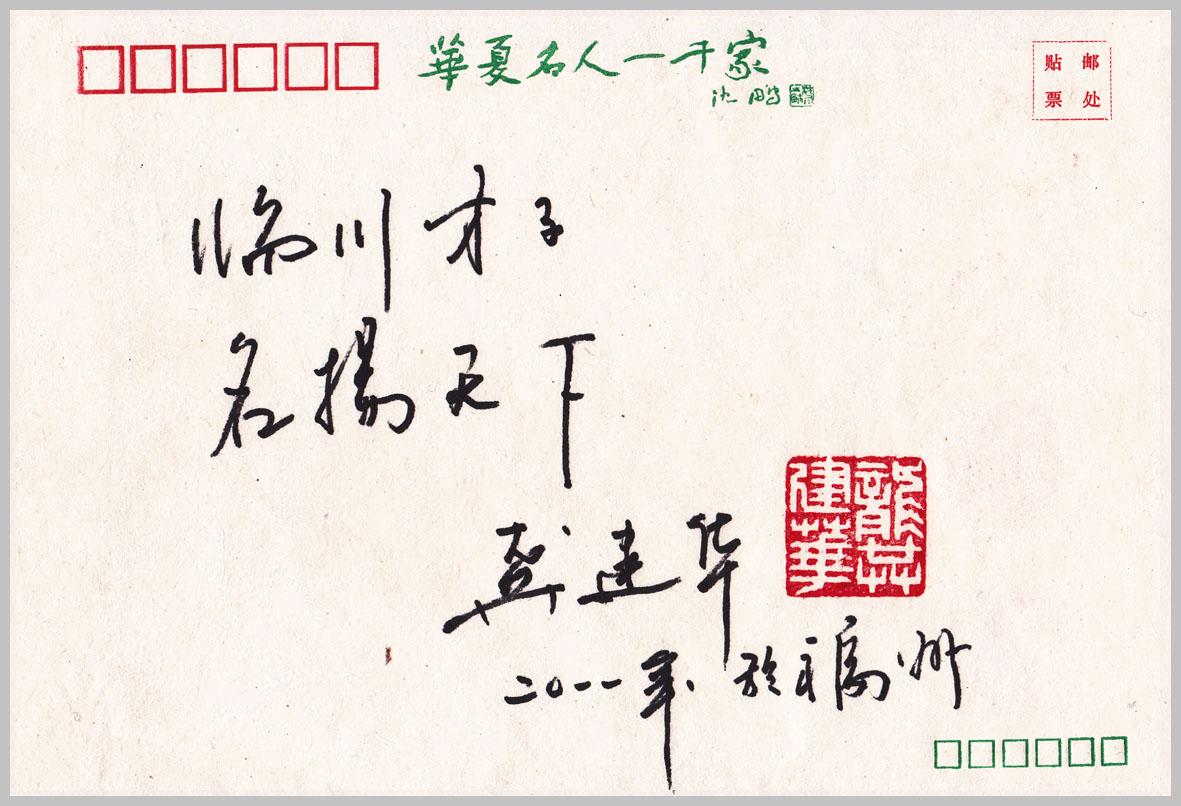 華夏名人一千家
沈鹏
贴邮
票处
临川才子
名揚天下
龚建华
龔建華
二0一一年.於福州